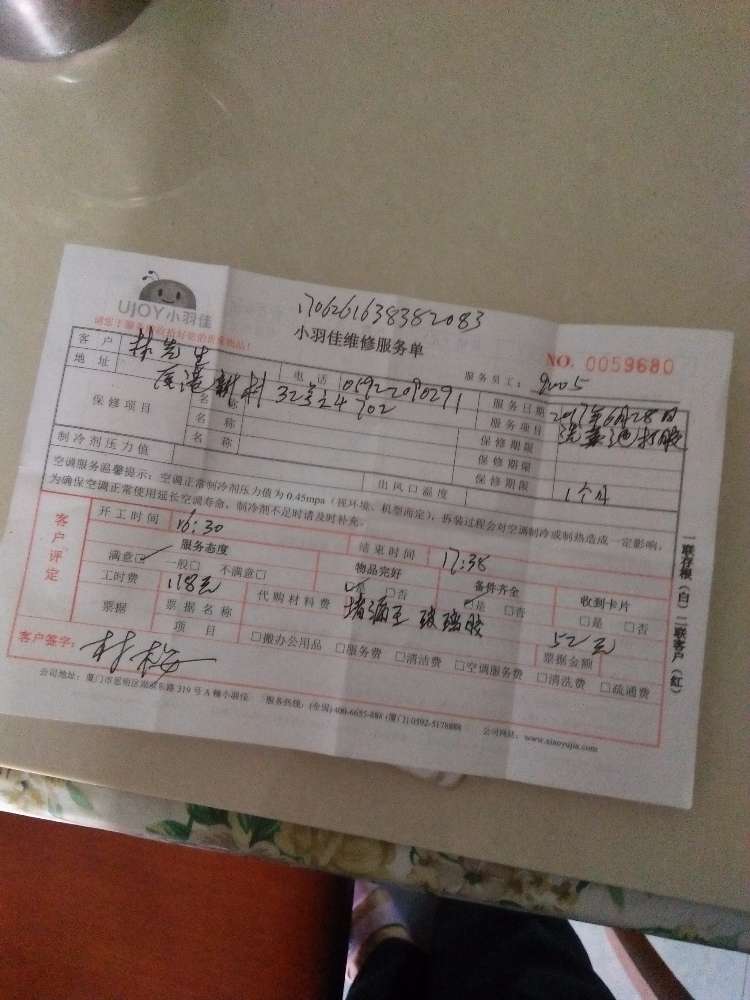 1706261638382083
UJOY小羽佳
小羽佳维修服务单
NO. 0059680
客户 林先生 电话 05922090291 服务员工： 9005
地址 32号之4 702 服务日期 2017年6月28日
保修项目 名称 服务项目
名称 保修期限
名称 保修期限
制冷剂压力值 出风口温度 保修期限 1个月
空调服务温馨提示：空调正常制冷剂压力值为0.45mpa（视环境、机型而定），拆装过程会对空调制冷或制热造成一定影响，
为确保空调正常使用延长空调寿命，制冷剂不足时请及时补充。
客户评定
开工时间 16:30 结束时间 17:38
服务态度 物品完好 备件齐全 收到卡片
满意☑ 一般□ 不满意□ ☑是 □否 ☑是 □否 □是 □否
工时费 118元 代购材料费 堵漏王 玻璃胶 52元
票据 票据名称 票据金额
项目 □搬办公用品 □服务费 □清洁费 □空调服务费 □清洗费 □疏通费
客户签字：
公司地址：厦门市思明区湖滨东路319号A幢小羽佳 服务热线：(全国)400-6655-888 (厦门)0592-5178888 公司网站：www.xiaoyujia.com
一联存根（白）二联客户（红）